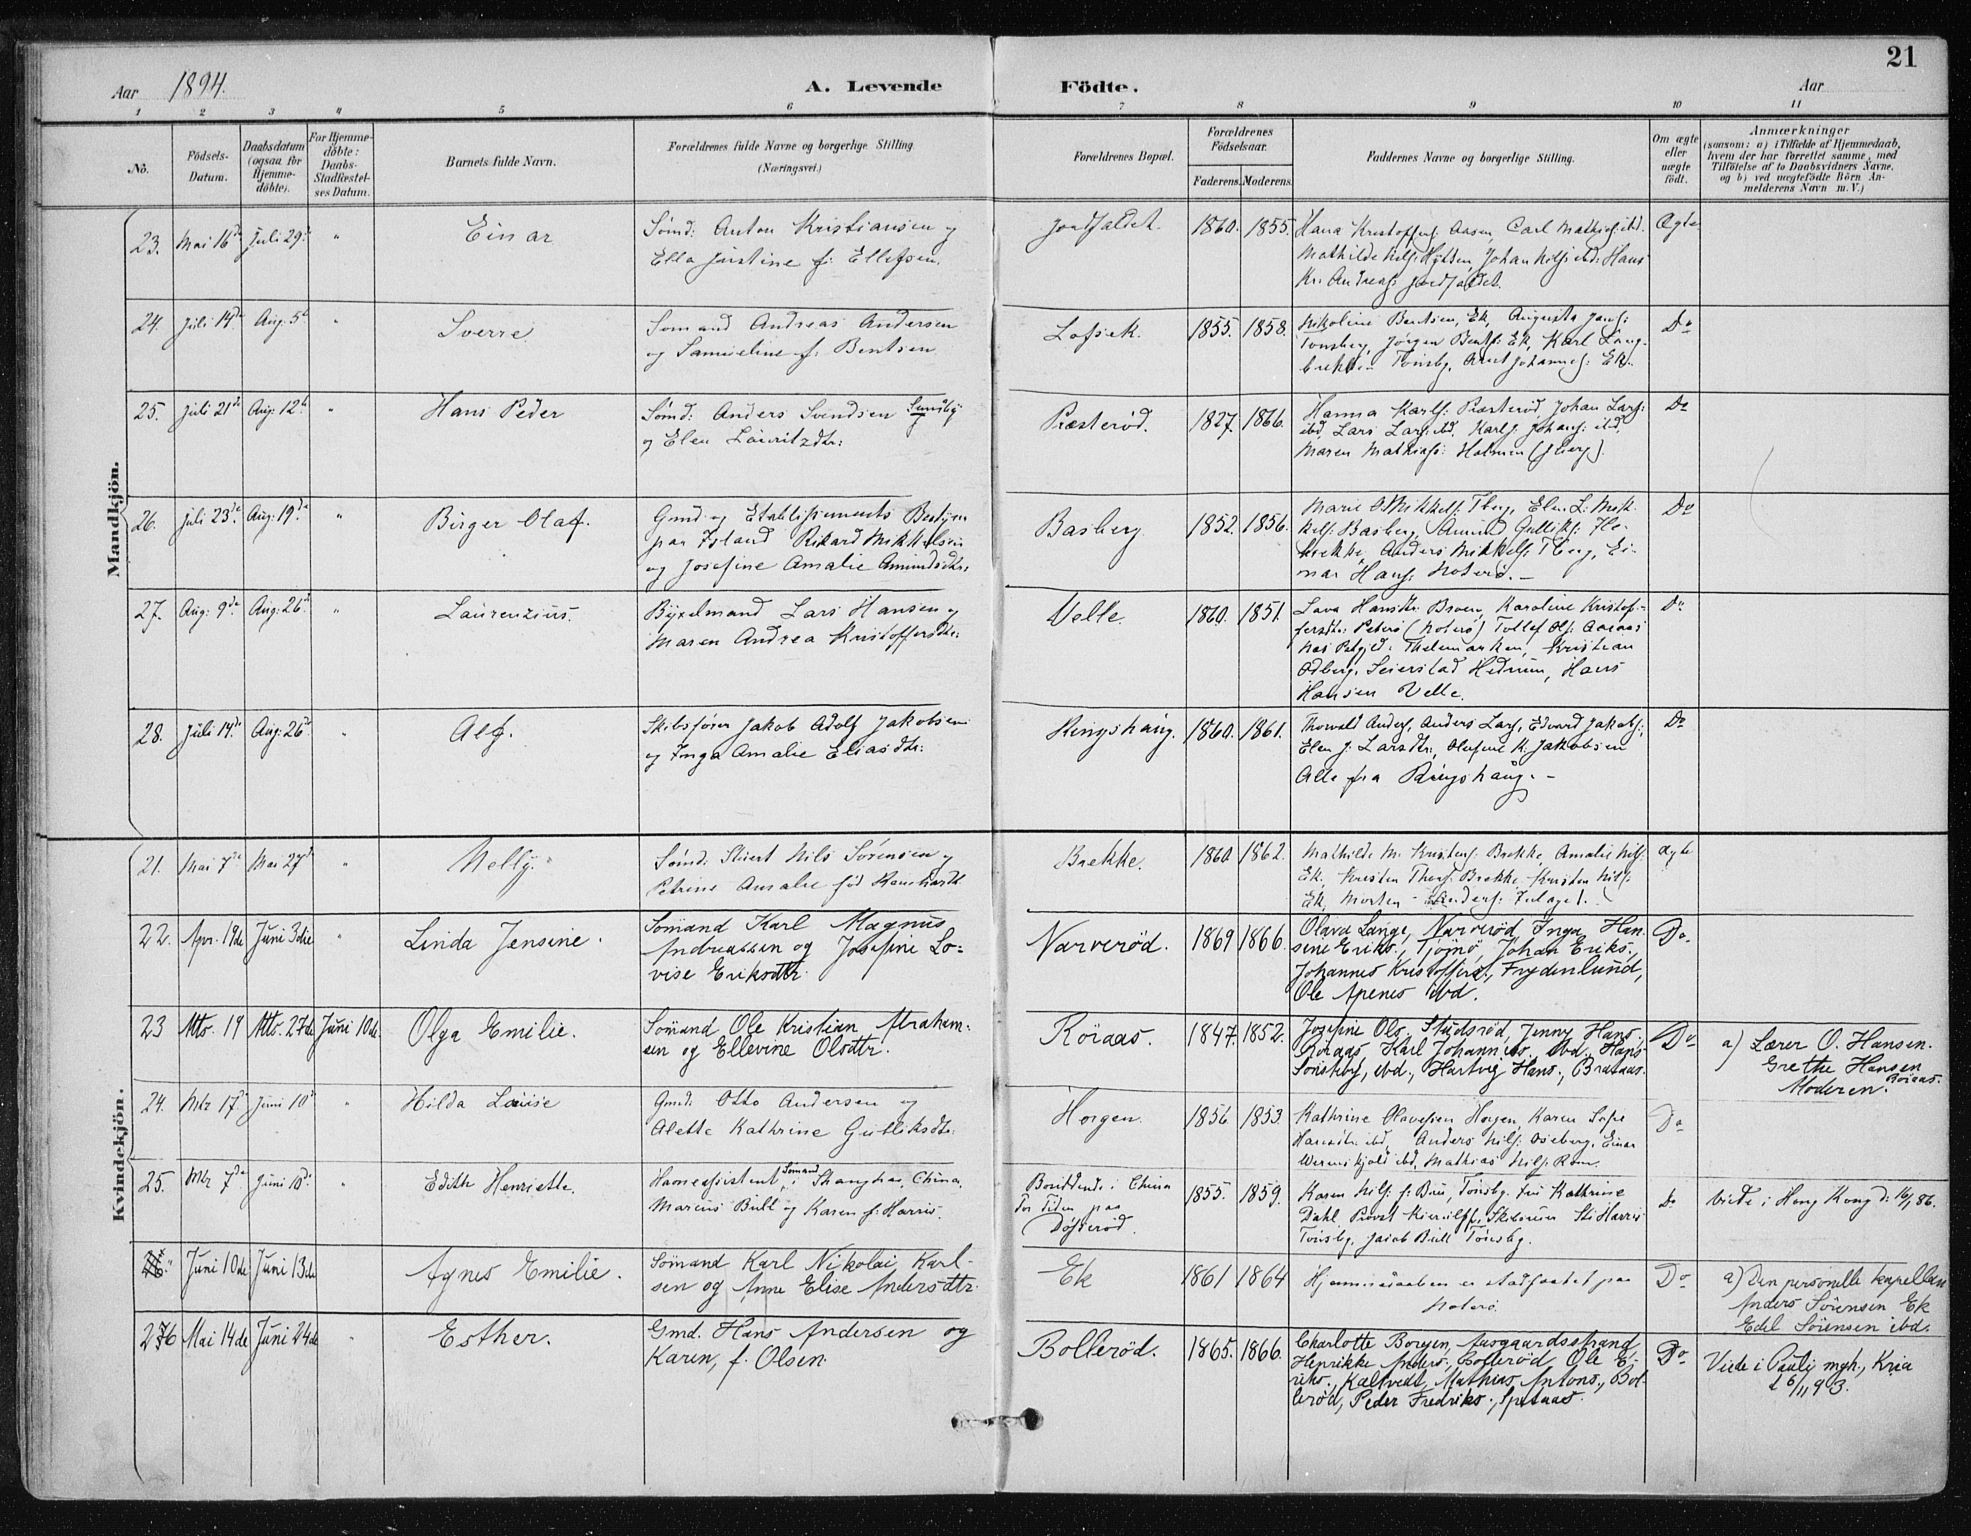 21
Aar 1894.
A. Levende Födte.
Aar
1 2 3 4 5 6 7 8 9 10 11
No.
Födsels-
Datum.
Daabsdatum
(ogsaa for
Hjemme-
döbte).
For Hjemme-
döbte:
Daabs-
Stadfæstel-
ses Datum.
Barnets fulde Navn.
Forældrenes fulde Navne og borgerlige Stilling
(Næringsvei.)
Forældrenes Bopæl.
Forældrenes
Födselsaar.
Faderens. Moderens.
Faddernes Navne og borgerlige Stilling.
Om ægte
eller
uægte
födt.
Anmærkninger
(saasom: a) i Tilfælde af Hjemmedaab,
hvem der har forrettet samme, med
Tilföielse af to Daabsvidners Navne,
og b) ved uægtefödte Börn An-
melderens Navn m. V.)
Mandkjön.
23. Mai 16de Juli 29de " Einar
Sömd: Anton Kristiansen og
Ella Justine f: Ellefsen.
Jordfaldet. 1860. 1855.
Hana Kristoffers: Aasen, Carl Mathis: ibd.
Mathilde Nils: Hytten, Johan Nils: ibd: Hans
Kr. Andreas: Jordfaldet.
Ægte
24. Juli 14de Aug. 5te " Sverre
Sömand Andreas Andersen
og Samueline f. Bentsen
Lofsek. 1855. 1858.
Nikoline Bentsen, Ek, Augusta Jans:
Tönsberg, Jörgen Bents: Ek, Karl
Tönsbg, Johannes: Ek.
Do
25. Juli 21de Aug: 12te " Hans Peder
Sömd: Anders Svendsen
og Elen Lauritzdtr:
Præsteröd. 1827. 1866.
Hanna Karls: Præsteröd, Johan Lars:
ibd, Lars Lars: ibd, Karl Johans: ibd,
Maren Mathias: Holmen
Do
26. Juli 23de Aug: 19de " Birger Olaf.
Gmd og Etablissements Bestyrer
paa Island Rikard Mikkelsen
og Josefine Amalie Amundsdtr:
Basberg 1852. 1856.
Marie Mikkels: Tberg, Elen L. Mik-
kels: Basberg, Amund Gulliks:
Anders Mikkels: Tberg, Ei-
nar Hans: Nöterö.
Do
27. Aug: 9de Aug: 26de " Laurenzius.
Byxelmand Lars Hansen og
Maren Andrea Kristoffersdtr:
Velle. 1860. 1851.
Lava Hansdtr: Broen, Karoline Kristof-
fersdtr: Peterö (Noterö) Tollef Ols:
Thelemarken, Kristian
Odberg, Seierstad Hedrum, Hans
Hansen Velle.
Do
28. Juli 14de Aug: 26de " Alf.
Skibsförer Jakob Adolf Jakobsen
og Inga Amalie Eliasdtr:
Ringshaug. 1860. 1861.
Thorvald Anders, Anders Lars, Edvard Jakobs:,
Elen J. Larsdtr:, Olufine K. Jakobsen
Alle fra Ringshaug. -
Do
Kvindekjön.
21. Mai 7de Mai 27de " Nelly.
Sömd: Nils Sörensen og
Petrine Amalie föd
Brekke. 1860 1862.
Mathilde M. Kristens: Brekke, Amalie Nils:
Ek, Kristen Thors: Brekke, Kristen Nils:
Ek, Morten Anders:
Ægte
22. Apr. 19de Juni 3die " Linda Jensine.
Sömand Karl Magnus
Andreassen og Josefine Lo-
vise Eriksdtr.
Narveröd. 1869 1866.
Olava Lange, Narveröd, Inga Han-
sine Eriks., Tjömö, Johan Eriks.,
Johannes Kristoffers., Frydenlund,
Ole Apenes ibd.
Do.
23 Mts. 19 Mts. 27de Juni 10de Olga Emilie.
Sömand Ole Kristian Abraham-
sen og Ellevine Olsdtr.
Röraas. 1847. 1852.
Josefine Ols., Studsröd, Jenny Hans.
Röraas, Karl Johannes., ibd., Hans
Sönsteby, ibd., Hartvig Hans., Brataas.
Do
a) Lærer O. Hansen.
Grethe Hansen
Röraas.
Moderen.
24. Mts 17de Juni 10de " Hilda Louise
Gmd: Otto Andersen og
Alette Kathrine Gulliksdtr:
Horgen. 1856. 1853
Kathrine Olavesen Horgen, Karen Sofie
Hansdtr. ibd, Anders Nils: Oseberg, Einar
Werenskjold ibd, Mathias Nils: Rom.
Do
25. Mts 7de Juni 10de " Edith Henriette.
Havneassistent, Sömand i Shanghai, China,
Marius Bull og Karen f: Harris.
Boende i China
For Tiden paa
Döfteröd.
1855. 1859.
Karen Nils: f: Bull, Tönsbg. Fru Kathrine
Dahl, Provst Kierulf, Harris
Tönsbg, Jacob Bull Tönsbg.
Do
Viede i Hong Kong d: 16/1 86.
Juni 10de Juni 13de Agnes Emilie.
Sömand Karl Nikolai Karl-
sen og Anne Elise Andersdtr.
Ek 1861 1864
Hjemmedaaben er stadfæstet paa
Noterö.
Do
a) Den personelle Kapellan
Anders Sörensen Ek
Edel Sörensen ibd.
26 Mai 14de Juni 24de " Esther.
Gmd. Hans Andersen og
Karen, f. Olsen.
Bolleröd. 1865. 1866.
Charlotte Borgen, Aasgaardsstrand
Henrikke Anders., Bolleröd, Ole E-
riks., Kaltvedt, Mathias Antons., Bol-
leröd, Peder Fredriks.,
Do
Viede i Pauli mgh., Kria
d 6/11 93.